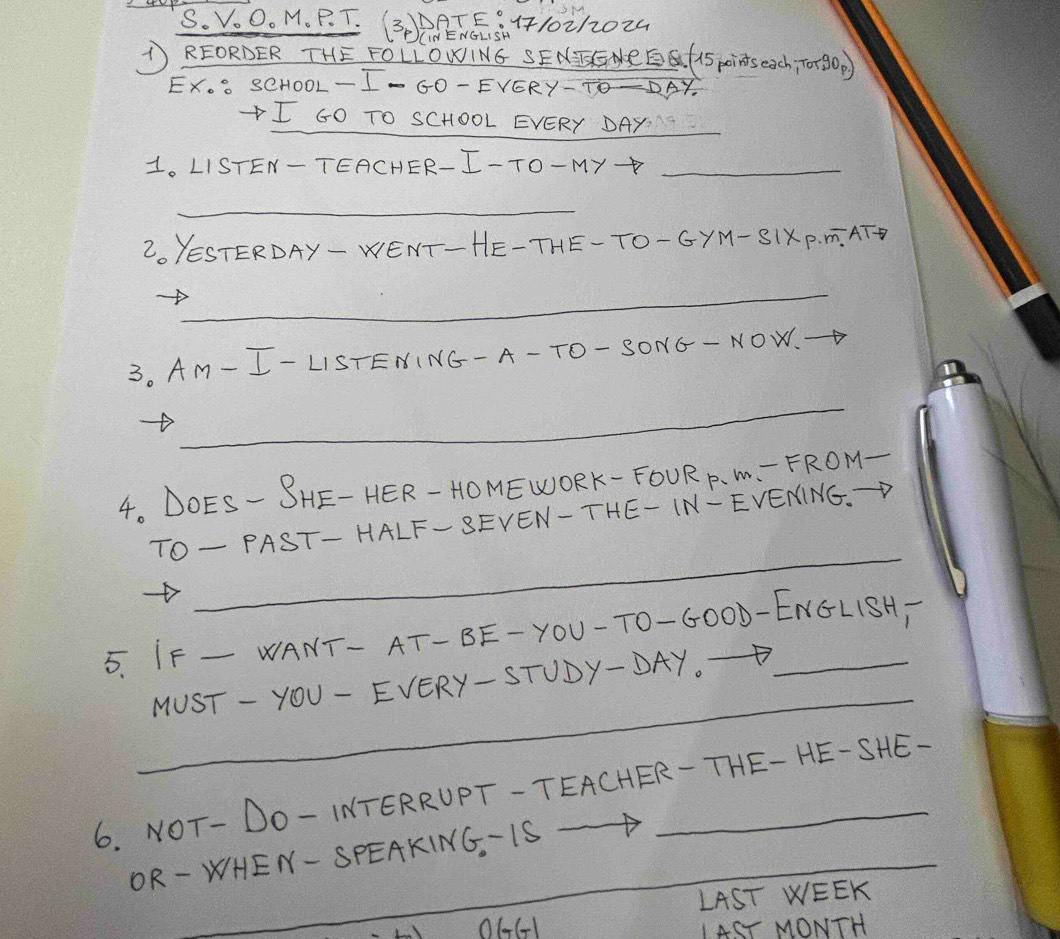 S.V.O.M.P.T. (3p) DATE: 17/02/2024
(IN ENGLISH
1) REORDER THE FOLLOWING SENTENCES. (15 points each; TOT 90p.)
EX.: SCHOOL - I - GO - EVERY - TO - DAY.
→ I GO TO SCHOOL EVERY DAY
1. LISTEN - TEACHER - I - TO - MY →
2. YESTERDAY - WENT - HE - THE - TO - GYM - SIX p.m. - AT →
→
3. AM - I - LISTENING - A - TO - SONG - NOW. →
→
4. DOES - SHE - HER - HOMEWORK - FOUR p.m. - FROM -
TO - PAST - HALF - SEVEN - THE - IN - EVENING. →
→
5. IF - WANT - AT - BE - YOU - TO - GOOD - ENGLISH, -
MUST - YOU - EVERY - STUDY - DAY. →
6. NOT - DO - INTERRUPT - TEACHER - THE - HE - SHE -
OR - WHEN - SPEAKING. - IS →
LAST WEEK
OGGI LAST MONTH